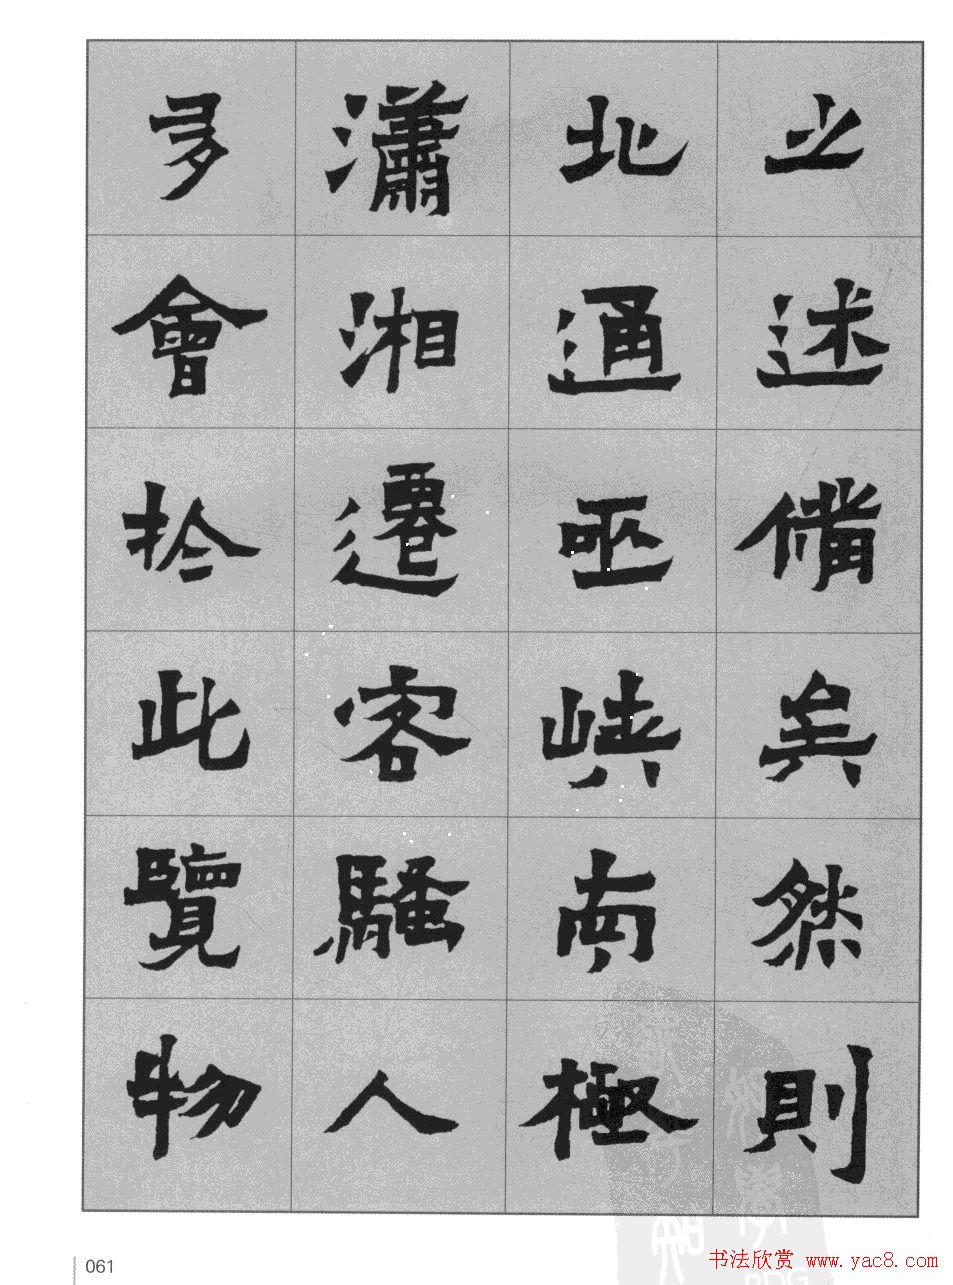 之述備矣然則
北通巫峽南極
瀟湘遷客騷人
多會扵此覽物
061
书法欣赏 www.yac8.com